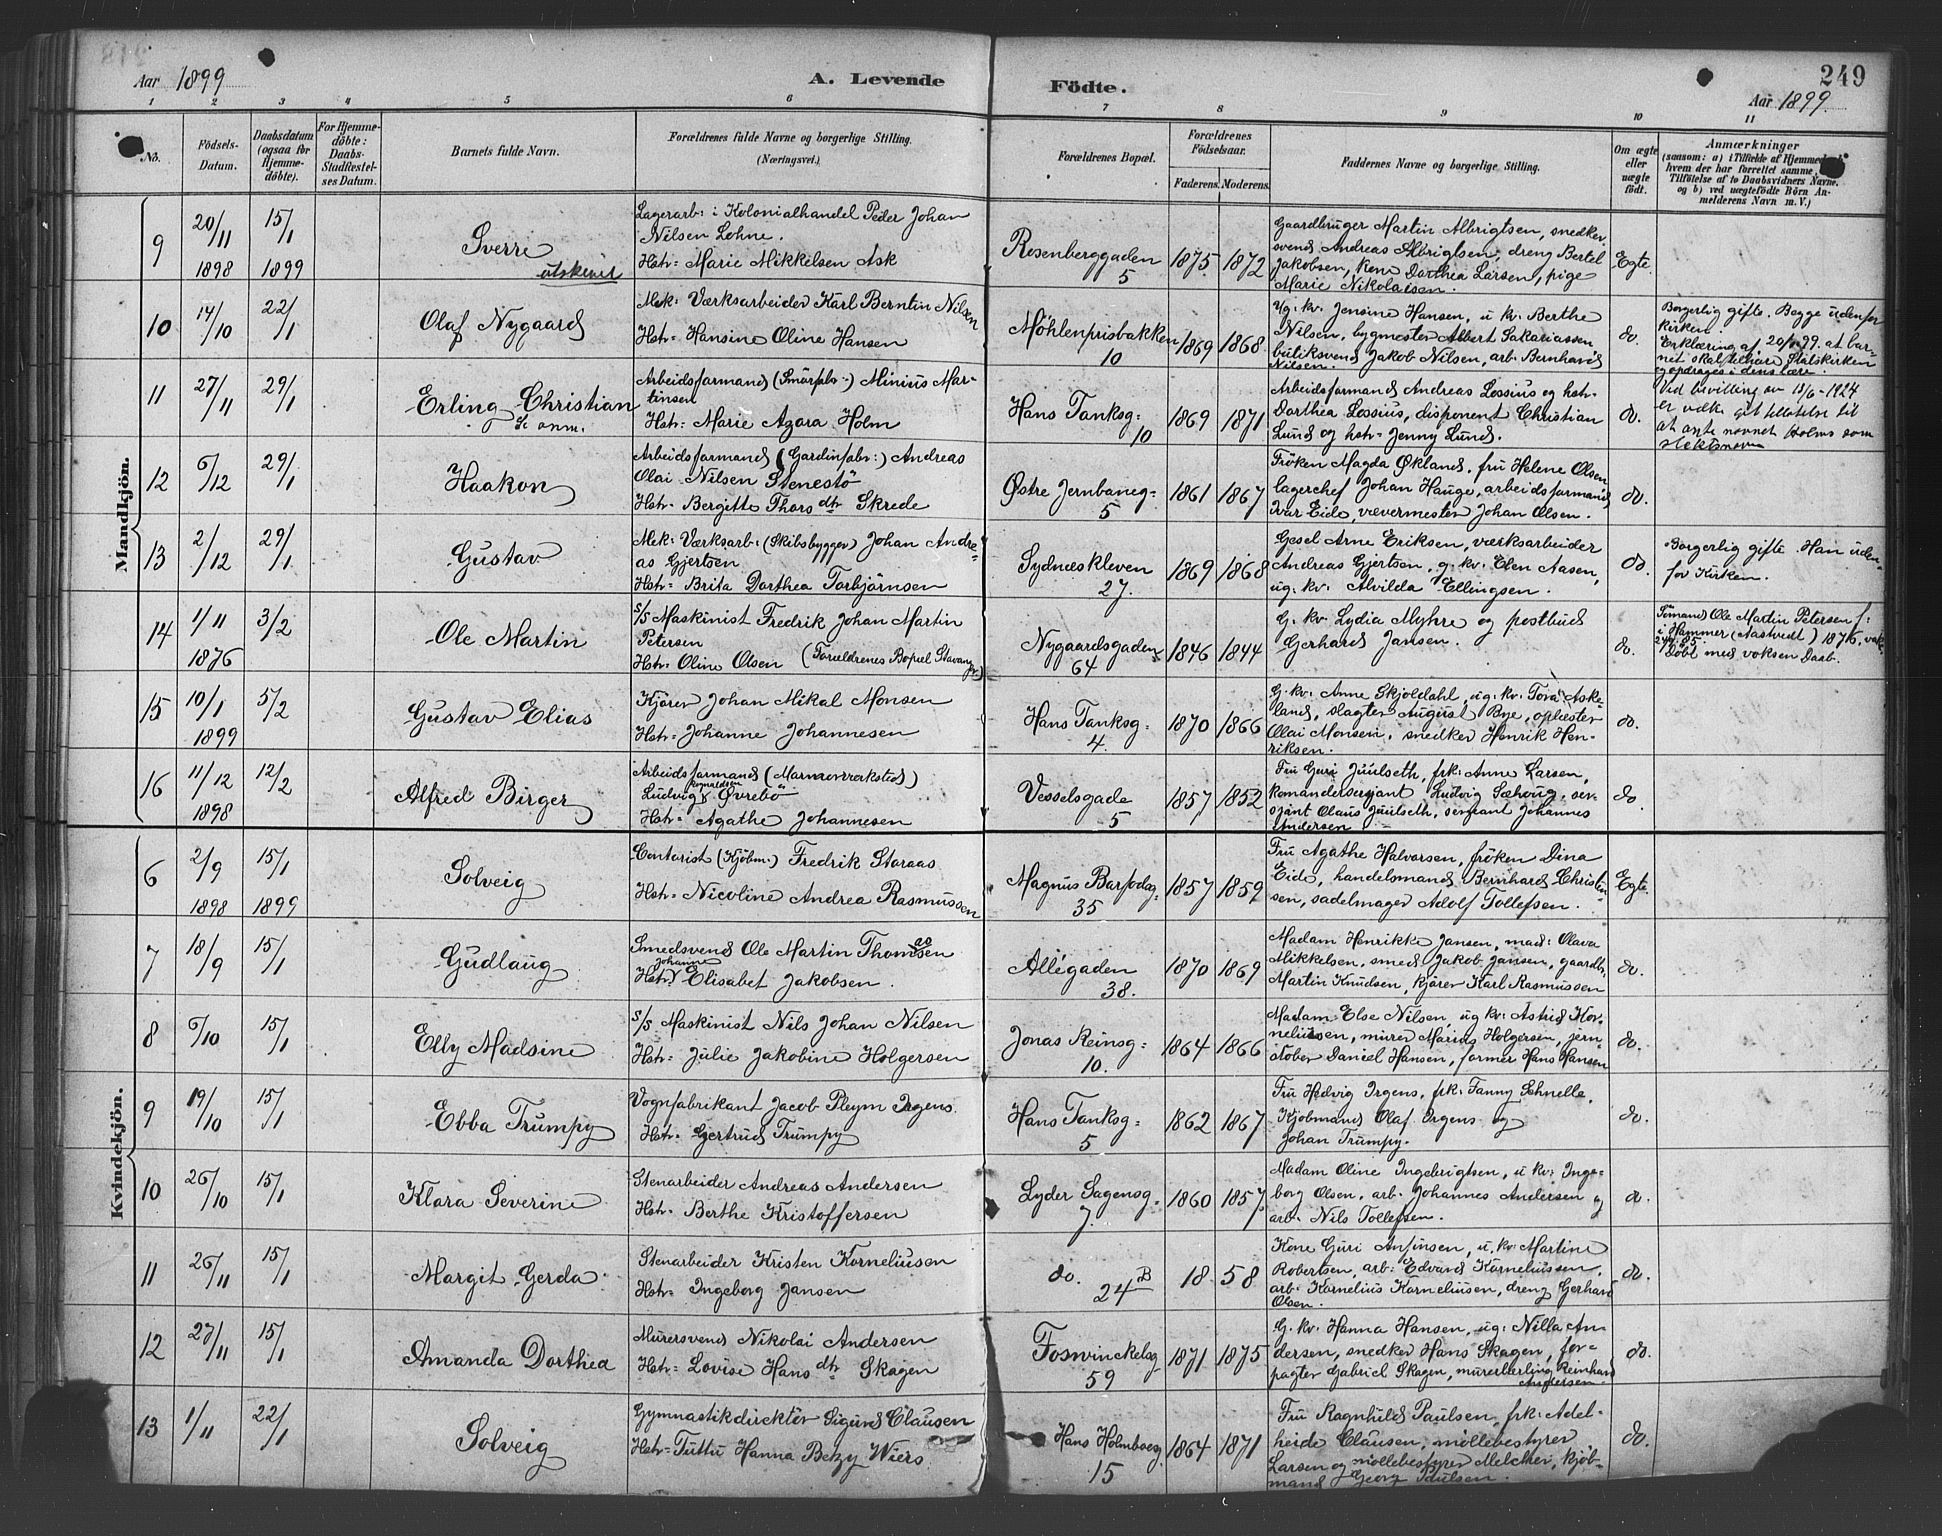 249
Aar 1899 A. Levende Födte. Aar 1899.
1 2 3 4 5 6 7 8 9 10 11
No.
Födsels-Datum.
Daabsdatum (ogsaa for Hjemme-döbte).
For Hjemme-döbte: Daabs-Stadfæstel-ses Datum.
Barnets fulde Navn.
Forældrenes fulde Navne og borgerlige Stilling.
(Næringsvei.)
Forældrenes Bopæl.
Forældrenes Födselsaar.
Faderens. Moderens.
Faddernes Navne og borgerlige Stilling.
Om ægte eller uægte födt.
Anmærkninger
Mandkjön.
9 20/11 1898 15/1 1899 Sverre
utskrevet
Lagerarb: i Kolonialhandel Peder Johan
Nilsen Lohne.
Hstr: Marie Mikkelsen Ask
Rosenberggaden 5 1875 1872
Gaardbruger Martin Albrigtsen, snedker
svend Andreas Albrigtsen, dreng Bertel
Jakobsen, kone Dorthea Larsen, pige
Marie Nikolaisen.
Egte.
10 14/10 22/1 Olaf Nygaard
Mek: Værksarbeider Karl Berntin Nilsen
Hstr: Hansine Oline Hansen
Möhlenprisbakken 10 1869 1868
Ug. kv. Jensine Hansen, u. kv: Berthe
Nilsen, bygmester Albert Sakariassen
butiksvend Jakob Nilsen, arb: Bernhard
Nilsen.
do.
Borgerlig gifte. Begge udenfor
kirken
Erklæring af 20/1 99. at bar-
net skal tilhøre Statskirken
og opdrages i dens lære.
11 27/11 29/1 Erling Christian
Arbeidsformand (Smörfabr.) Minius Mar-
tinsen
Hstr: Marie Azora Holm
Hans Tanksg: 10 1869 1871
Arbeidsformand Andreas Lossius og hstr.
Dorthea Lossius, disponent Christian
Lund og hstr. Jenny Lund.
do.
Ved bevilling av 13/6-1924
12 6/12 29/1 Haakon
Arbeidsformand (Gardinfabr:) Andreas
Olai Nilsen Stenestö
Hstr. Bergitte Thorsdtr Skrede
Östre Jernbaneg: 5 1861 1867
Fröken Magda Økland, fru Helene Olsen
lagerchef Johan Hauge, arbeidsformand
Ivar Eide, vævermester Johan Olsen.
do.
13 2/12 29/1 Gustav
Mek: Værksarb: (Skibsbygger) Johan Andre-
as Gjertsen
Hstr: Brita Dorthea Torbjörnsen
Sydnæskleven 27. 1869 1868
Gesel Arne Eriksen, værksarbeider
Andreas Gjertsen, g. kv: Elen Aasen,
ug. kv. Alvilda Ellingsen.
do.
Borgerlig gifte. Han uden-
for Kirken.
14 1/11 1876 3/2 Ole Martin
S/S Maskinist Fredrik Johan Martin
Petersen
Hstr: Oline Olsen (Forældrenes Bopæl Stavanger)
Nygaardsgaden 64 1846 1844
G. kv. Lydia Myhre og postbud
Gerhard Jansen.
do.
Sömand Ole Martin Petersen f:
i Hammer (Nastvedt) 1876, vak.
Döbt med voksen Daab.
15 10/1 1899 5/2 Gustav Elias
Kjörer Johan Mikal Monsen
Hstr: Johanne Johannesen
Hans Tanksg: 4. 1870 1866
G. kv: Anne Skjoldahl, ug: kv: Tora Aske-
land, slagter August Bye, ophester
Olai Monsen, snedker Henrik Hen-
riksen.
do.
16 11/12 1898 12/2 Alfred Birger
Arbeidsformand (Marmorværksted)
Ludvig Romaldsen Övrebö
Hstr: Agathe Johannesen
Vesselsgade 5 1857 1852
Fru Guri Juulseth, frk: Anne Larsen,
komandersersjant Ludvig Sæhoug, ser-
sjant Olaus Juulseth, sersjant Johannes
Andersen
do.
Kvindekjön.
6 2/9 1898 15/1 1899 Solveig
Contorist (Kjöbm.) Fredrik Staraas
Hstr: Nicoline Andrea Rasmussen
Magnus Barfodsg. 35 1857 1859
Fru Agathe Halvorsen, fröken Dina
Eide, handelsmand Bernhard Christen-
sen, sadelmager Adolf Tollefsen.
Egte.
7 18/9 15/1 Gudlaug
Smedsvend Ole Martin Thomsen
Hstr. Johanne Elisabet Jakobsen.
Allégaden 38. 1870 1869
Madam Henrikke Jansen, mad: Olava
Mikkelsen, smed Jakob Jansen, gaardbr.
Martin Knudsen, kjörer Karl Rasmussen
do.
8 6/10 15/1 Elly Madsine
S/S Maskinist Nils Johan Nilsen
Hstr: Julie Jakobine Holgersen
Jonas Reinsg: 10. 1864 1866
Madam Else Nilsen, ug kv: Astrid Kor-
neliussen, murer Marius Holgersen, jern-
stöber Daniel Hansen, former Hans Hansen
do.
9 19/10 15/1 Ebba Trumpy
Vognfabrikant Jacob Pleym Irgens.
Hstr: Gjertrud Trumpy
Hans Tanksg: 5 1862 1867
Fru Hedvig Irgens, frk: Fanny Schnelle,
Kjöbmand Olaf Irgens og
Johan Trumpy.
do.
10 26/10 15/1 Klara Severine
Stenarbeider Andreas Andersen
Hstr: Berthe Kristoffersen
Lyder Sagensg. 7. 1860 1857
Madam Oline Ingebrigtsen, u kv: Inge-
borg Olsen, arb: Johannes Andersen og
arb. Nils Tollefsen.
do.
11 26/11 15/1 Margit Gerda
Stenarbeider Kristen Korneliusen
Hstr: Ingeborg Jansen
do. 24 B 18 58
Kone Guri Anfinsen, u. kv: Martine
Robertsen, arb: Edvard Korneliussen,
arb: Kornelius Korneliusen, dreng Gerhard
Olsen.
do.
12 27/11 15/1 Amanda Dorthea
Murersvend Nikolai Andersen
Hstr: Lovise Hansdtr Skagen
Foswinckelsg 59 1871 1875
G. kv: Hanna Hansen, ug: Nilla An-
dersen, snedker Hans Skagen, for-
pagter Gabriel Skagen, murerlærling Reinhard
Andersen.
do.
13 1/11 22/1 Solveig
Gymnastikdirektör Sigurd Clausen
Hstr: Tuttu Hanna Betzy Wiers
Hans Holmboesg 15 1864 1871
Fru Ragnhild Paulsen, frk: Adel-
heide Clausen, möllebestyrer
Larsen og möllebestyrer Melcher, kjöb-
mand Georg Paulsen.
do.